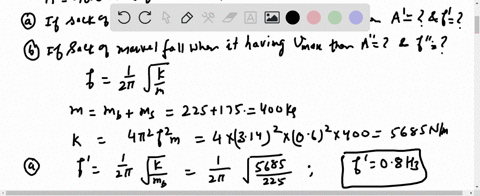 (a) If sack of A'=? & f'=?
(b) If Sack of maxvel fall when it having Vmax then A''=? & f''=?
f = 1/2π √k/m
m = mb + ms = 225+175 = 400 kg
k = 4π²f²m = 4×(3.14)²×(0.6)²×400 = 5685 N/m
(a) f' = 1/2π √k/mb = 1/2π √5685/225 ; f' = 0.8 Hz